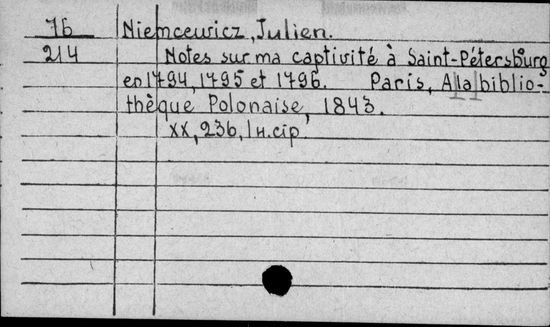 76 Niemcewicz, Julien.
214 Notes sur ma captivité à Saint-Pétersbourg
en 1794, 1795 et 1796. Paris, A la biblio-
thèque Polonaise, 1843.
XX, 236, 1 н.стр.